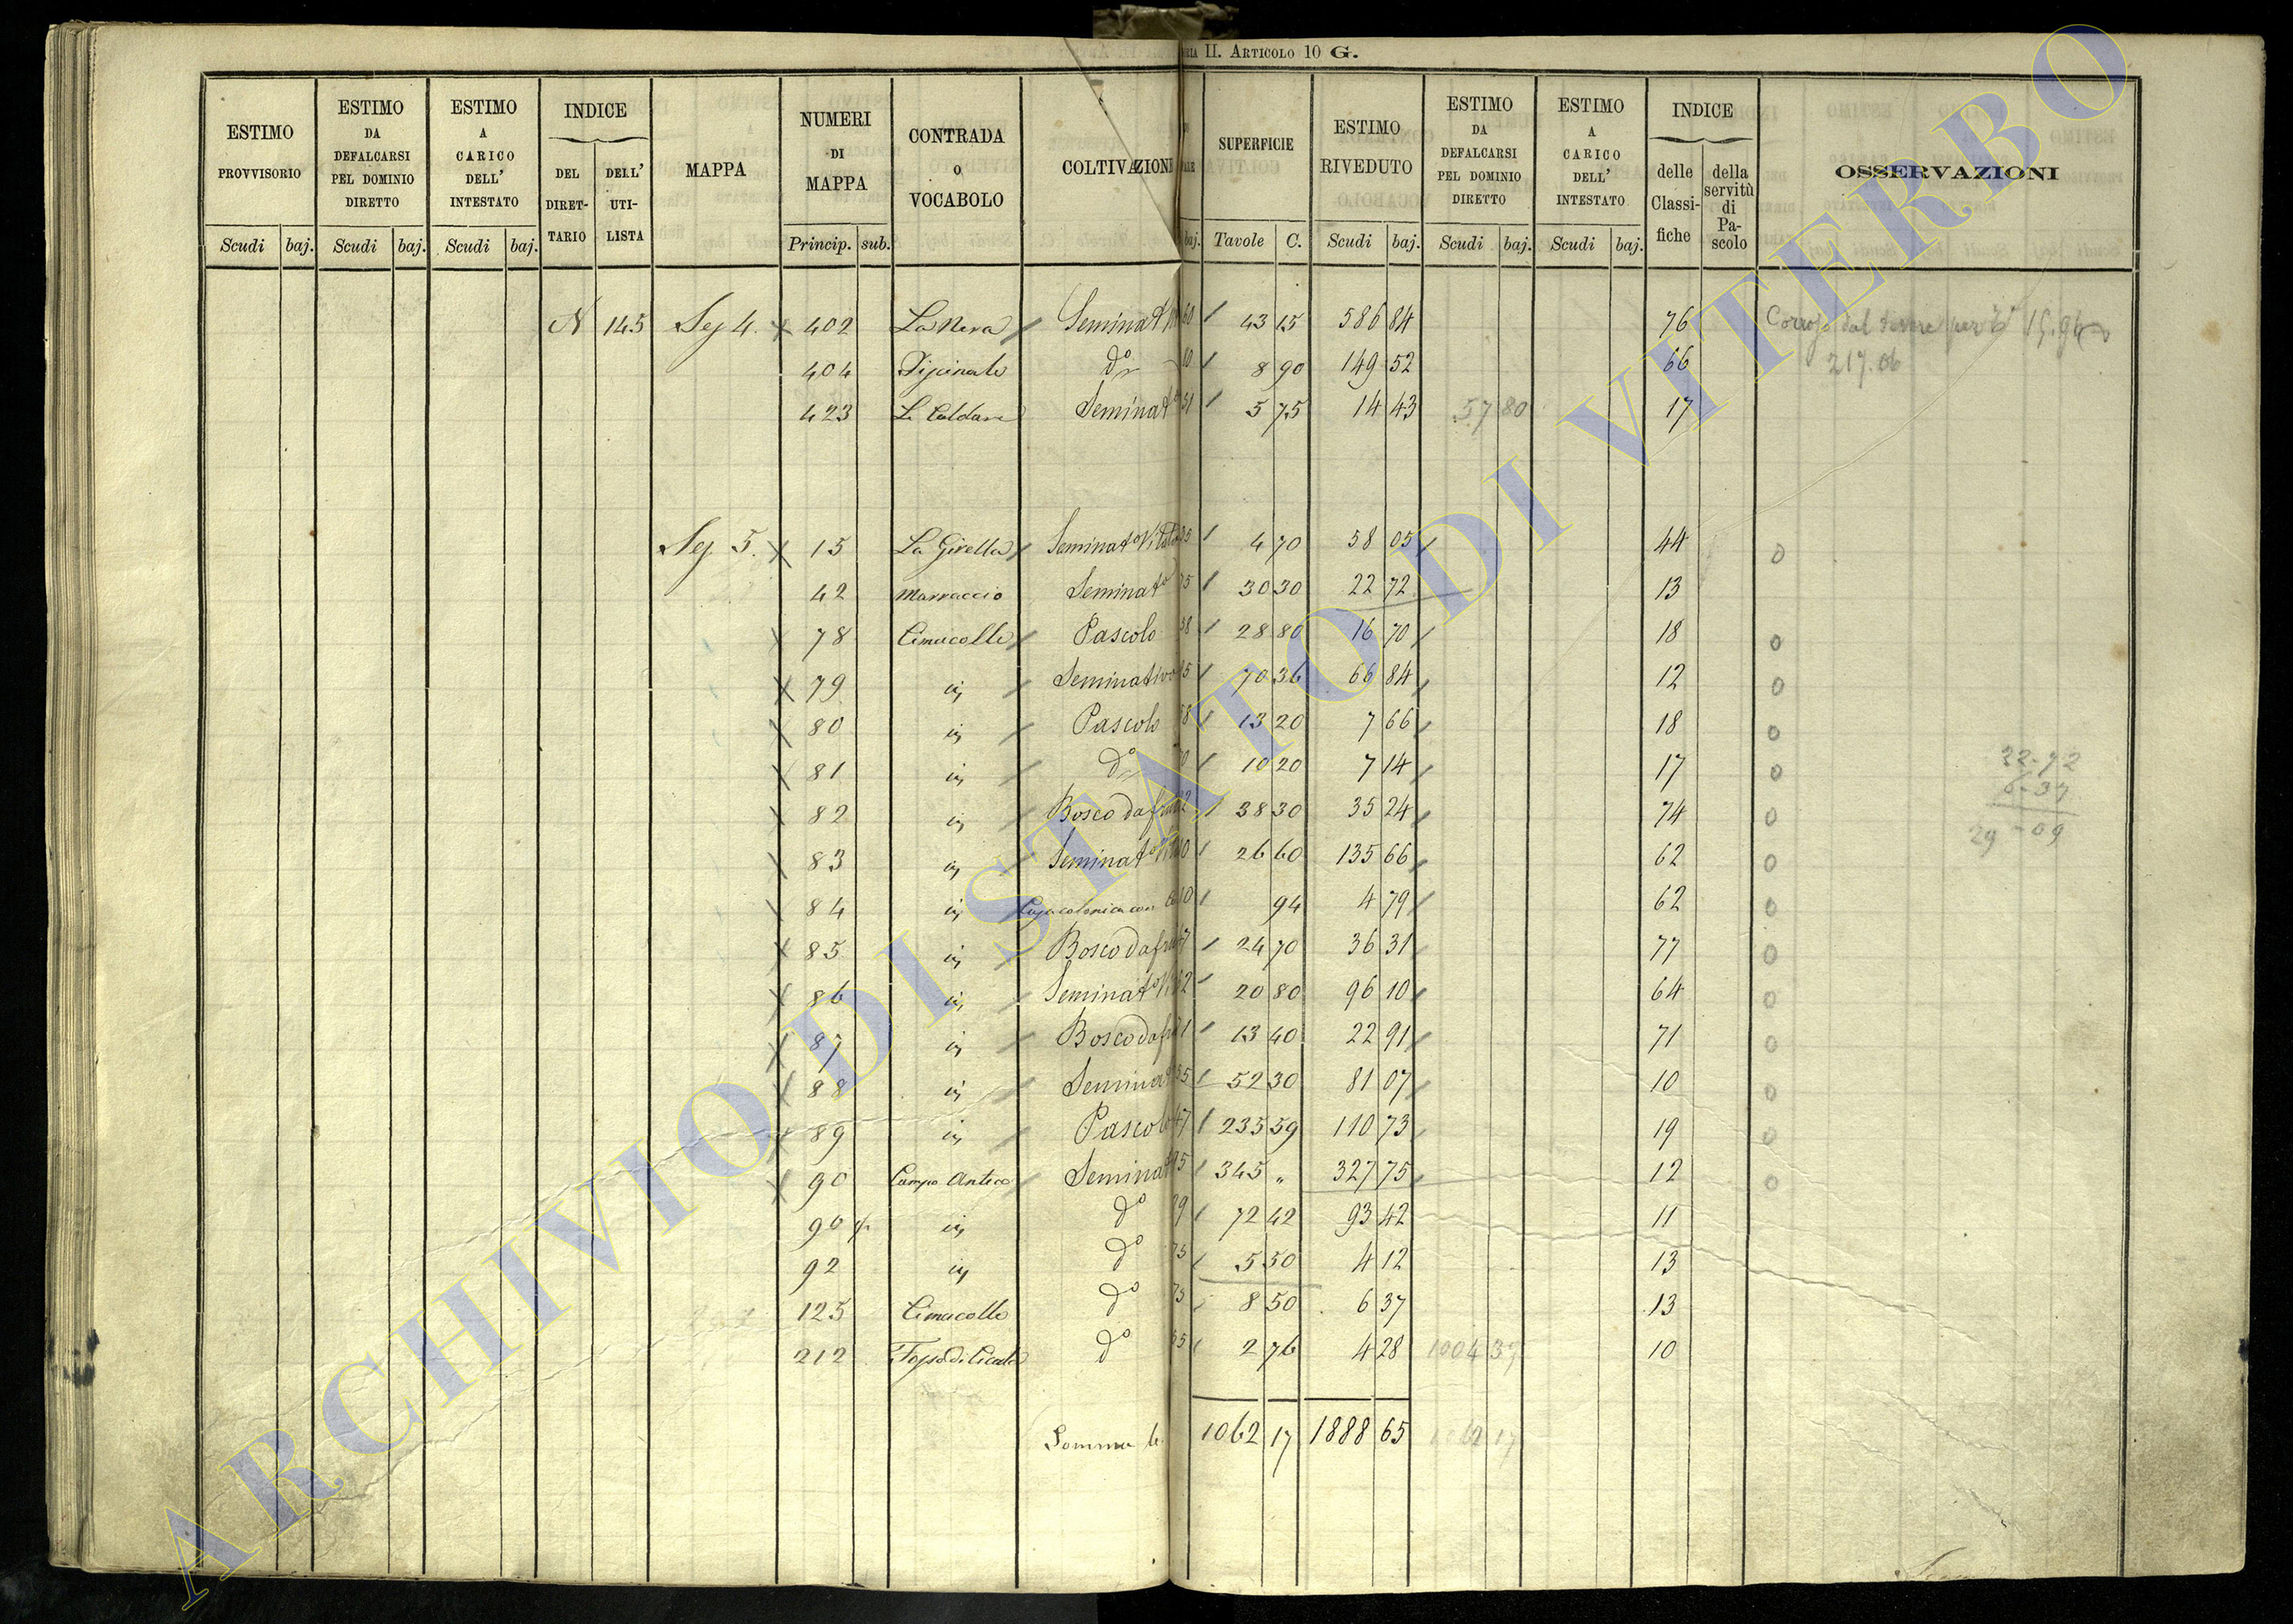 II. ARTICOLO 10 G.
ESTIMO PROVVISORIO Scudi baj.
ESTIMO DA DEFALCARSI PEL DOMINIO DIRETTO Scudi baj.
ESTIMO A CARICO DELL' INTESTATO Scudi baj.
INDICE DEL DIRET-TARIO DELL' UTI-LISTA
MAPPA
NUMERI DI MAPPA Princip. sub.
CONTRADA O VOCABOLO
COLTIVAZIONE
baj.
SUPERFICIE Tavole C.
ESTIMO RIVEDUTO Scudi baj.
ESTIMO DA DEFALCARSI PEL DOMINIO DIRETTO Scudi baj.
ESTIMO A CARICO DELL' INTESTATO Scudi baj.
INDICE delle Classi-fiche della servitù di Pa-scolo
OSSERVAZIONI
N 145 Sez 4. 402 La Nera Seminat 43 15 586 84 76 dal Tevere per 15.94
404 do 8 90 149 52 66 217.06
423 Seminato 51 5 75 14 43 57 80 17
Sez 5. 15 La Girella Seminato Vitato 35 4 70 58 05 44
42 Marraccio Seminato 75 30 30 22 72 13
78 Cimacolle Pascolo 58 28 80 16 70 18
79 Seminativo 95 70 36 66 84 12
80 Pascolo 58 13 20 7 66 18
81 do 70 10 20 7 14 17 22-72
82 Bosco da 92 38 30 35 24 74 6-37
83 Seminato 10 26 60 135 66 62 29-09
84 Casa colonica con 10 94 4 79 62
85 Bosco da 47 24 70 36 31 77
86 Seminato 62 20 80 96 10 64
87 Bosco da 71 13 40 22 91 71
88 Seminat 55 52 30 81 07 10
89 Pascolo 47 235 59 110 73 19
90 Campo Antico Seminat 95 345 „ 327 75 12
90 do 29 72 42 93 42 11
92 do 75 5 50 4 12 13
125 Cimacolle do 75 8 50 6 37 13
212 do 55 2 76 4 28 1004 37 10
Somma 1062 17 1888 65 1062 17
ARCHIVIO DI STATO DI VITERBO